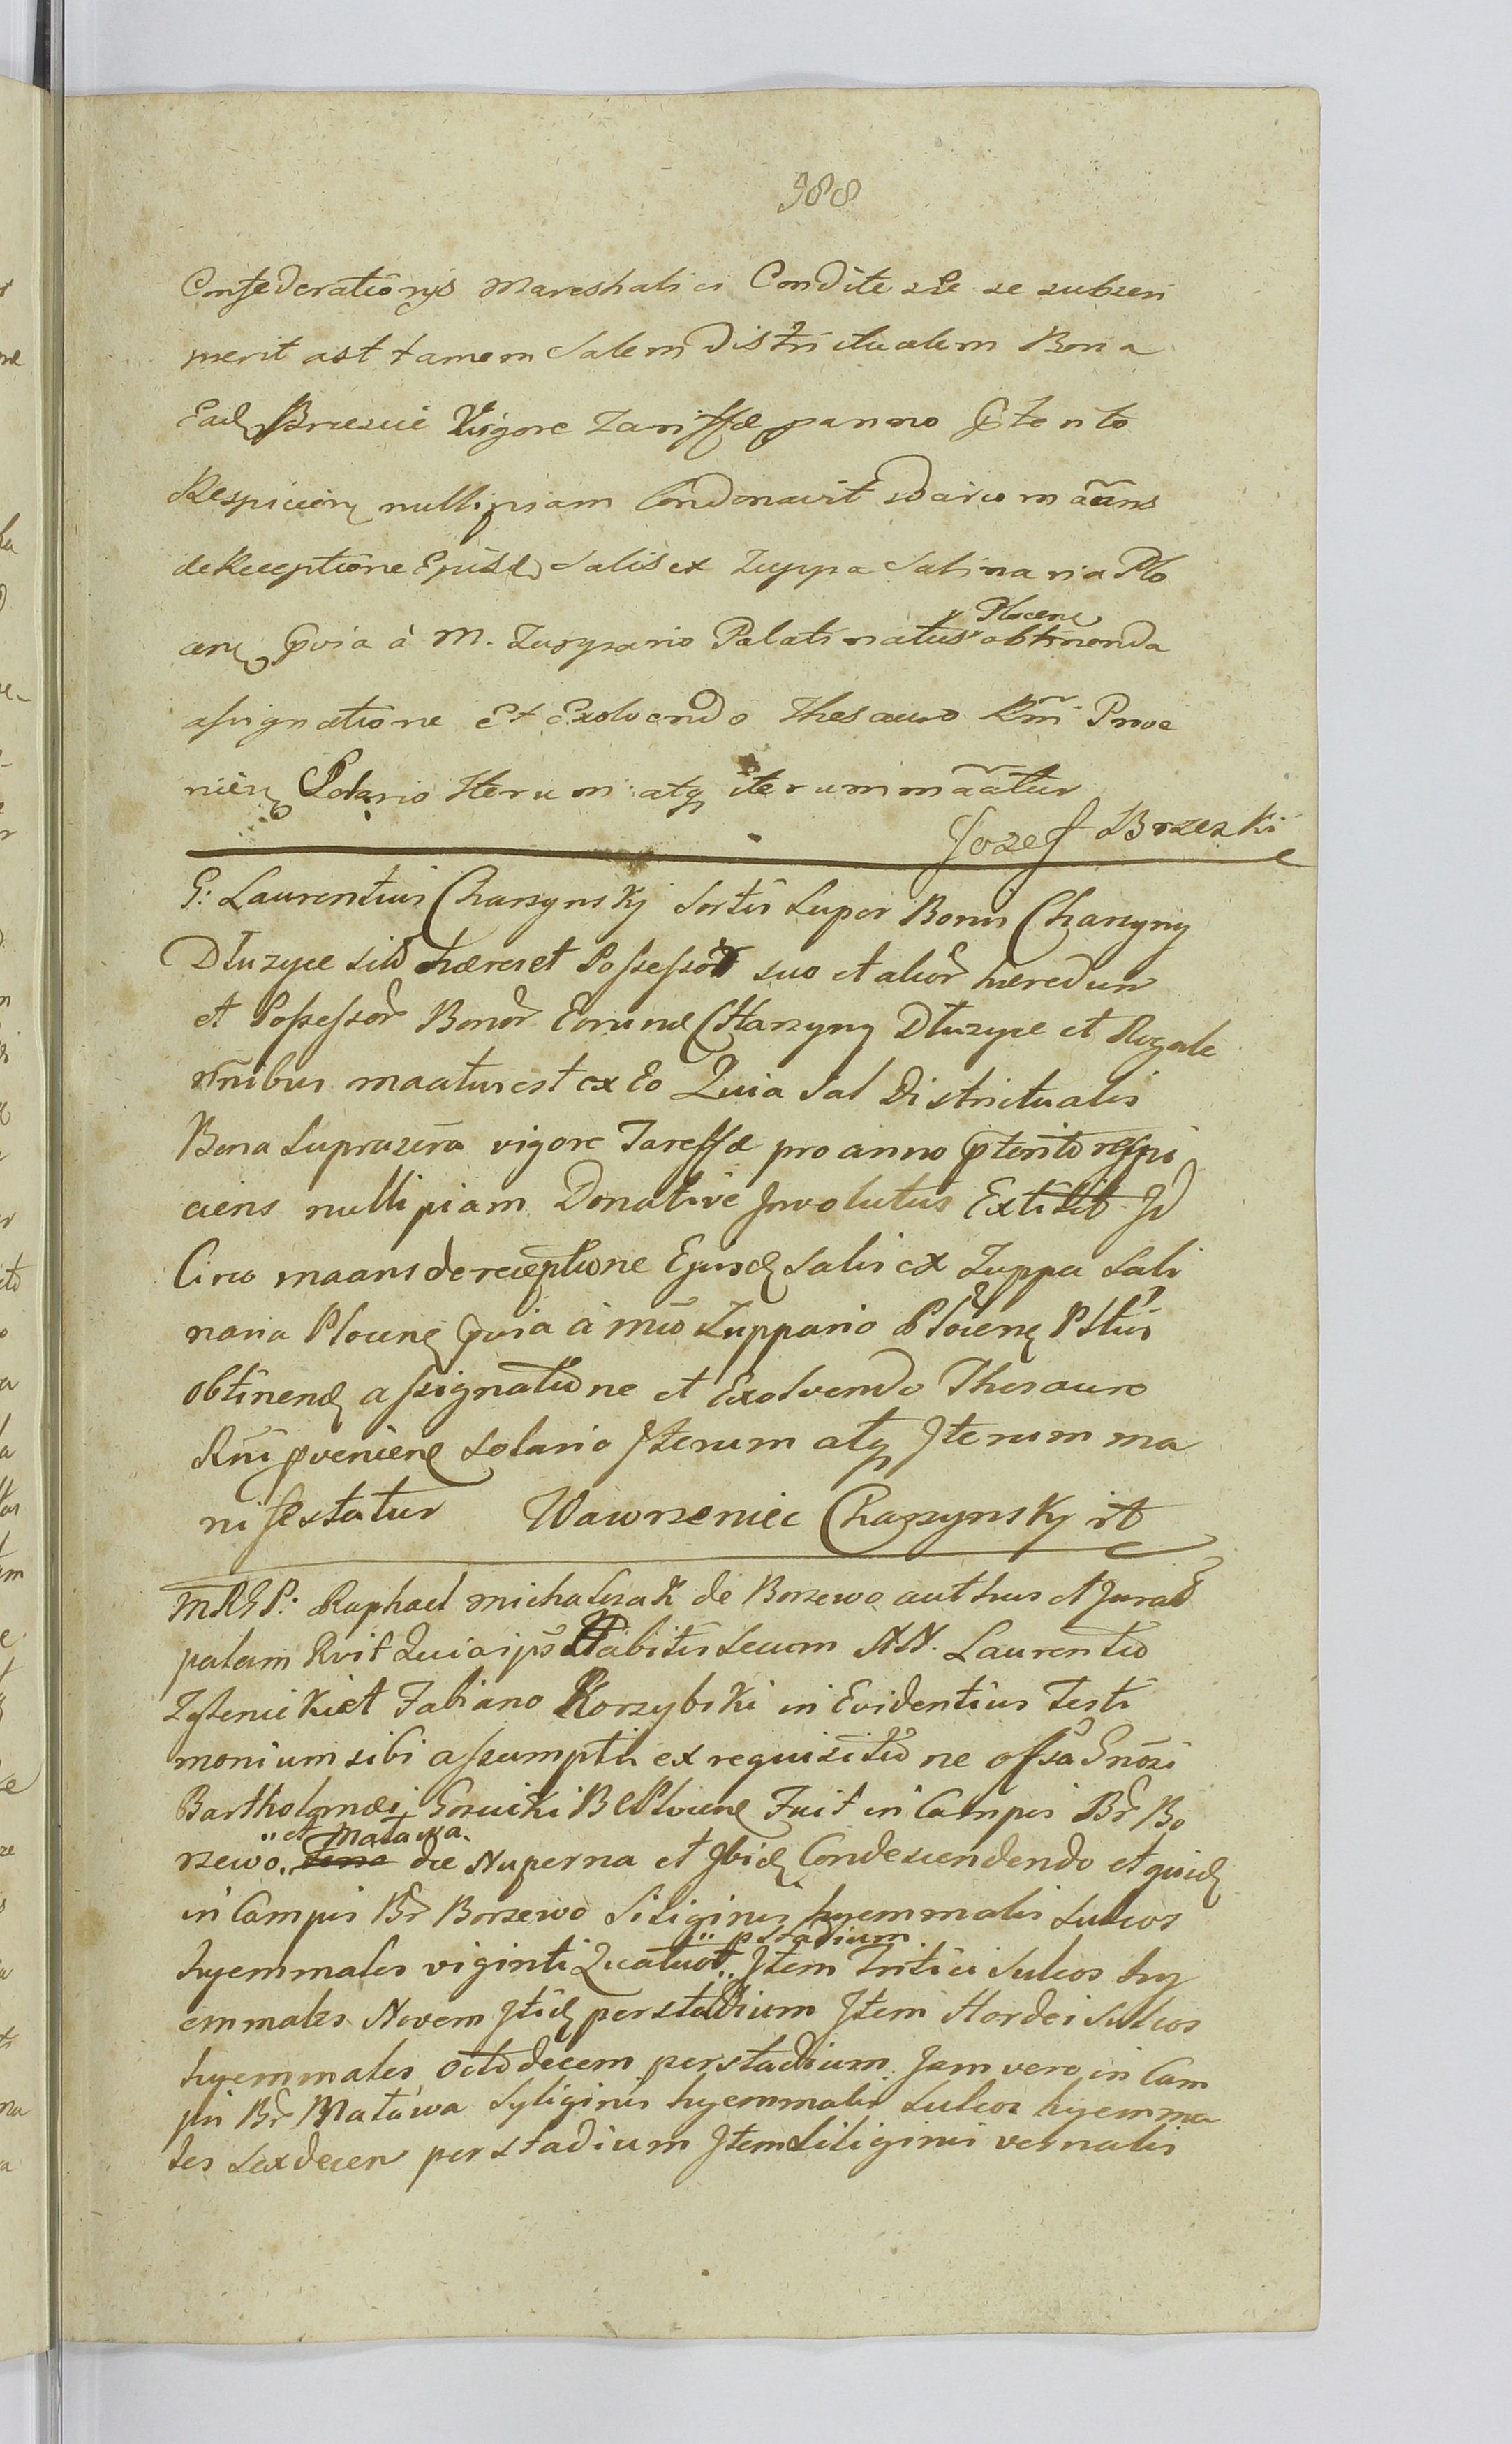 988
Confederationis Mareshalici Condite sse se subscri
pserit ast tamen Salem Districtualem Bona
Ead Brzescie Vigore Tariffæ panno ptento
Respicien nullipiam Condonavit Idcirco mãans
de Receptione Ejusd Salis ex Zuppa Salinaria Plo
cen pvia à M. Zuppario Palatinatus Plocens obtinenda
assignatione Et Exolvendo Thesauro Rni Prove
nien Solario Iterum atq iterum mãatur
Jozef Brzeski
G: Laurentius Charzynskj Sortis Super Bonis Charzyny
Dłuzyce sitt hæres et Possessor suo et alior hæredum
et Possessor Bonor Eorund Charzyny Dłuzyce et Rogale
nnibus maatus est ex Eo Quia Sal Districtualis
Bona Suprascra vigore Tareffæ pro anno pterito respi
ciens nullipiam Donative Involutus Extitit Id
Circo maans de receptione Ejusd Salis ex Zuppa Sali
naria Plocens pvia à mto Zuppario Plocens Pltus
obtinend assignatione et Exolvendo Thesauro
Rni pveniens Solario Iterum atq Iterum ma
nifestatur Wawrzeniec Charzynskj
MRGP: Raphael michalszak de Borzewo authus et Jurat
palam Rvit Quia ips Habitis Secum NN. Laurentio
et Fabiano Korzybski in Evidentius Testi
monium sibi assumptis ex requisitione offsa Gnosi
Bartholomæi Gozuicki BCPlocens Fuit in Campis Br Bo
rzewo et Matawa die Nuperna et Ibid Condescendendo et quid
in Campis Br Borzewo Siliginis hyemmalis Sulcos
hyemmales viginti Quatuor p stadium Item Tritici Sulcos hy
emmales Novem Itid per stadium Item Hordei Sulcos
hyemmales octodecem per stadium. Jam vero in Cam
pis Br Matawa Syliginis hyemmalis Sulcos hyemma
les Sexdecem per stadium Item Siliginis vernalis